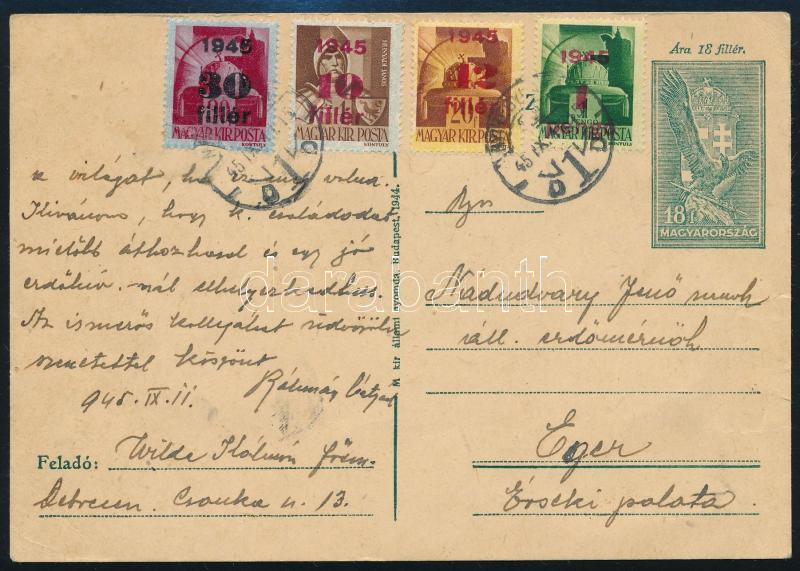 1945
30
fillér
MAGYAR KIR. POSTA
KONTULY
1945
10
fillér
HUNYADI JÁNOS
MAGYAR KIR. POSTA
KONTULY
1945
12
fillér
20f
MAGYAR KIR. POSTA
KONTULY
1945
1
MAGYAR KIR. POSTA
KONTULY
Ára 18 fillér.
18 f
MAGYARORSZÁG
a világát, ha
Kivánom, hogy k. családodat
mielőbb áthozhasd és egy jó
nál elhelyezkedhess.
Az ismerős kollégákat üdvözölve
szeretettel köszönt
Kálmán bátyád
945. IX. 11.
M. kir. állami nyomda. Budapest, 1944.
Nádudvary Jenő
áll. erdőmérnök
Eger
Érseki palota
Feladó: Wilde Kálmán
Debrecen. Csonka u. 13.
darabanth